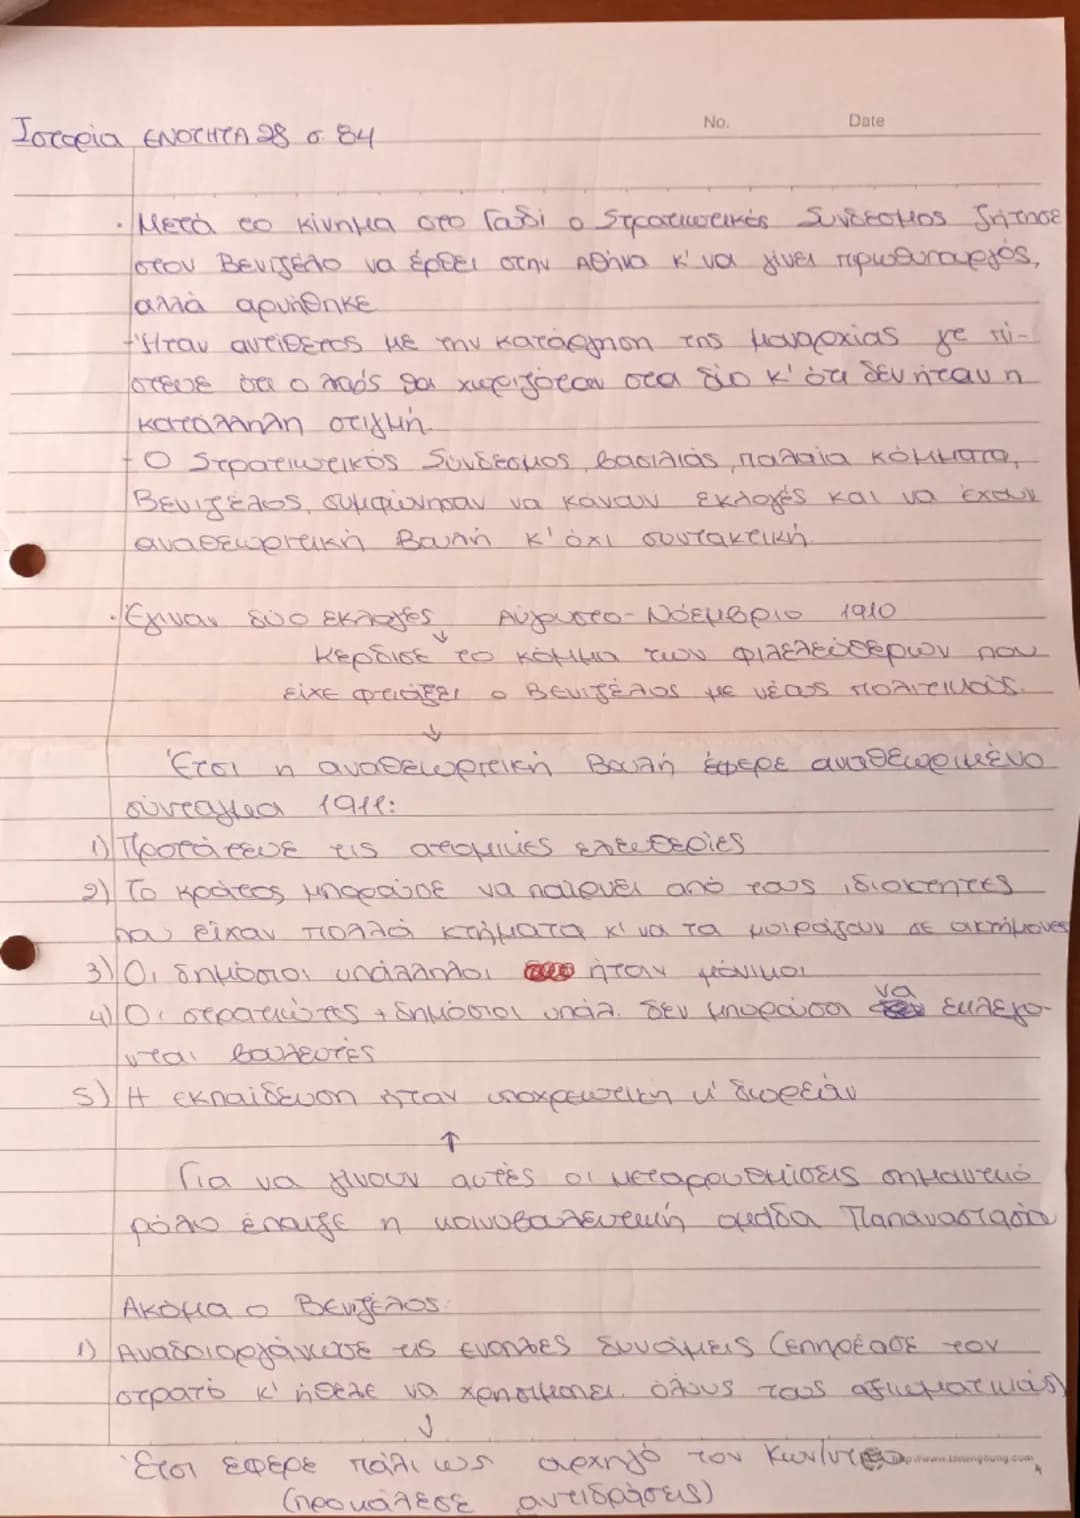 Ιστορία ΕΝΟΤΗΤΑ 28 σ. 84
No. Date
· Μετά το κίνημα στο Γουδί ο Στρατιωτικός Σύνδεσμος ζήτησε
στον Βενιζέλο να έρθει στην Αθήνα κ' να γίνει πρωθυπουργός,
αλλά αρνήθηκε
- Ήταν αντίθετος με την κατάργηση της μοναρχίας γτ πί-
στευε ότι ο λαός θα χωριζόταν στα δύο κ' ότι δεν ήταν η
κατάλληλη στιγμή.
- Ο Στρατιωτικός Σύνδεσμος, βασιλιάς, παλαιά κόμματα,
Βενιζέλος, συμφώνησαν να κάνουν εκλογές και να έχουν
αναθεωρητική Βουλή κ' όχι συντακτική.
· Έγιναν δύο εκλογές Αύγουστο - Νόεμβριο 1910
↓
Κέρδισε το κόμμα των φιλελεύθερων που
είχε φτιάξει ο Βενιζέλος με νέους πολιτικούς.
↓
Έτσι η αναθεωρητική Βουλή έφερε αναθεωριμένο
σύνταγμα 1911:
1) Προστάτευε τις ατομικές ελευθερίες
2) Το κράτος μπορούσε να παίρνει από τους ιδιοκτητες
που είχαν πολλά κτήματα κ' να τα μοιράζουν σε ακτήμονες
3) Οι δημόσιοι υπάλληλοι ήταν μόνιμοι
4) Οι στρατιώτες + δημόσιοι υπάλ. δεν μπορούσαν να εκλεγο-
νται βουλευτές
5) Η εκπαίδευση ήταν υποχρεωτική κ' δωρεάν
↑
Για να γίνουν αυτές οι μεταρρυθμίσεις σημαντικό
ρόλο έπαιξε η κοινοβουλευτική ομάδα Παπαναστασίου
Ακόμα ο Βενιζέλος:
1) Αναδοιοργάνωσε τις ενοπλες δυνάμεις (επηρέασε τον
στρατό κ' ήθελε να χρησιμοποιεί όλους τους αξιωματικούς)
↓
Έτσι έφερε πάλι ως αρχηγό τον Κων/ντίνο
(προκάλεσε αντιδράσεις)